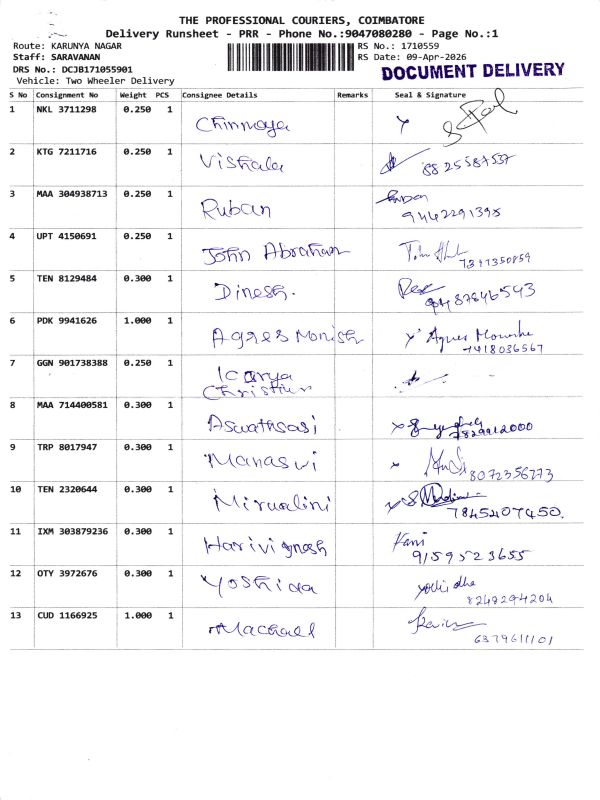 THE PROFESSIONAL COURIERS, COIMBATORE
Delivery Runsheet - PRR - Phone No.:9047080280 - Page No.:1
Route: KARUNYA NAGAR RS No.: 1710559
Staff: SARAVANAN RS Date: 09-Apr-2026
DRS No.: DCJB171055901 DOCUMENT DELIVERY
Vehicle: Two Wheeler Delivery
S No Consignment No Weight PCS Consignee Details Remarks Seal & Signature
1 NKL 3711298 0.250 1 Chinmaya
2 KTG 7211716 0.250 1 Vishala 8825587537
3 MAA 304938713 0.250 1 Ruban Ruban
9442291395
4 UPT 4150691 0.250 1 John Abraham
7397350859
5 TEN 8129484 0.300 1 Dinesh.
9487846543
6 PDK 9941626 1.000 1 Agnes Monish Agnes
7418036567
7 GGN 901738388 0.250 1 Icarya
Christien
8 MAA 714400581 0.300 1 Aswathsasi
9 TRP 8017947 0.300 1 Manaswi
8072356273
10 TEN 2320644 0.300 1 Mirualini
7845207450.
11 IXM 303879236 0.300 1 Harivignesh Hari
9159523655
12 OTY 3972676 0.300 1 Yoshida
8247294204
13 CUD 1166925 1.000 1 Machael
6379611101